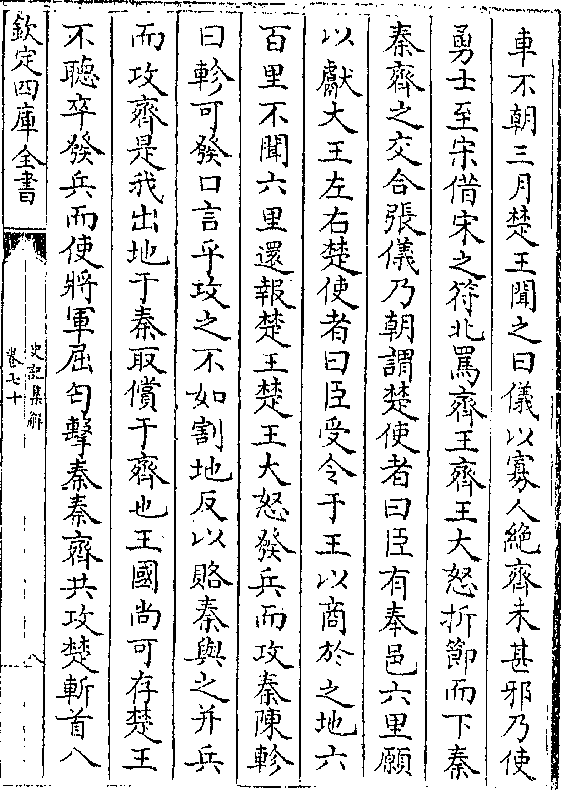 車不朝三月楚王聞之曰儀以寡人絶齊未甚邪乃使
勇士至宋借宋之符北罵齊王齊王大怒折節而下秦
秦齊之交合張儀乃朝謂楚使者曰臣有奉邑六里願
以獻大王左右楚使者曰臣受令于王以商於之地六
百里不聞六里還報楚王楚王大怒發兵而攻秦陳軫
曰軫可發口言乎攻之不如割地反以賂秦與之并兵
而攻齊是我出地于秦取償于齊也王國尚可存楚王
不聽卒發兵而使將軍屈匄擊秦秦齊共攻楚斬首八
欽定四庫全書
史記集解
卷七十
八